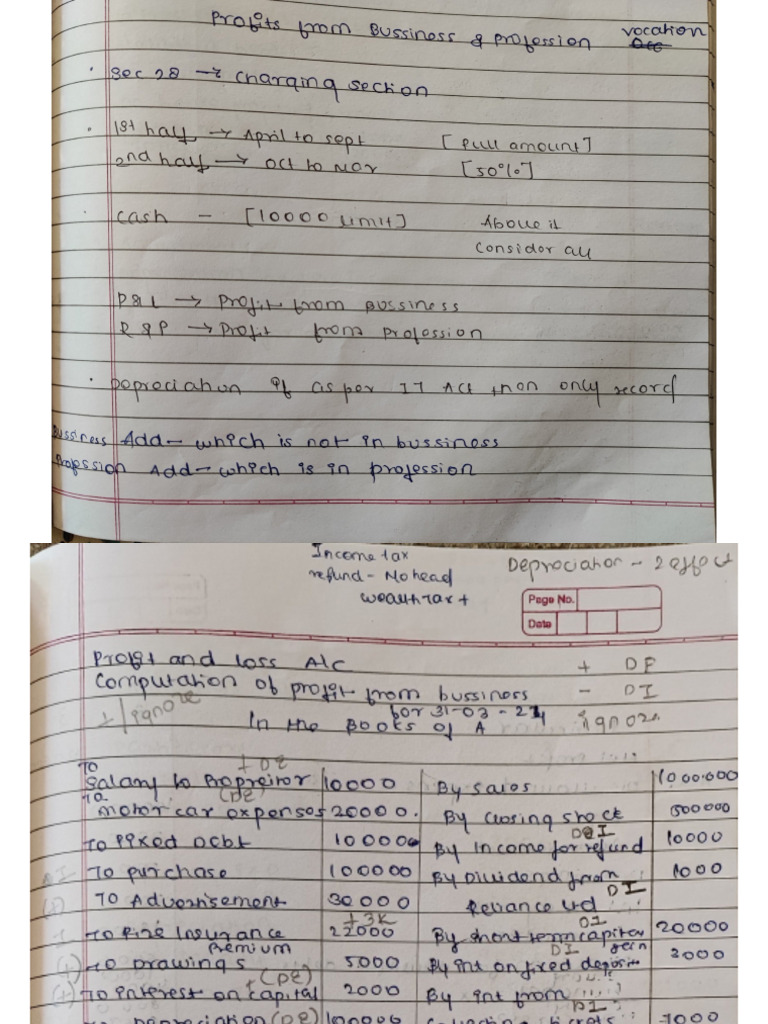 Profits from Bussiness & Profession vocation
Sec 28 → Charging section
1st half → April to Sept [Full amount]
2nd half → Oct to Nov [50%]
Cash - [10000 limit] Above it
Consider all
P&L → Profit from Bussiness
R&P → Profit from Profession
Depreciation if as per IT Act then only record
Bussiness Add- which is not in bussiness
Profession Add- which is in profession
Income tax
refund - No head
wealth tax +
Depreciation - 2 effect
Page No.
Date
Profit and loss A/c + DE
Computation of profit from bussiness - DI
for 31-03-24
+/Ignore In the Books of A ignore
To + DE
Salary to Propreitor 10000 By Sales 1000.000
To (DE)
motor car expenses 20000. By Closing Stock 500000
DI
To Fixed Debt 10000 By Income for refund 10000
To purchase 100000 By Dividend from 1000
To Advertisement 30000 Reliance Ltd DI
+3K DI
To Fire Insurance 22000 By short term capital gain 20000
Premium DI
(+) To Drawings 5000 By int on fixed deposits 2000
(DE)
(+) To interest on capital 2000 By int from
DI
To Depreciation (DE) 100000 7000